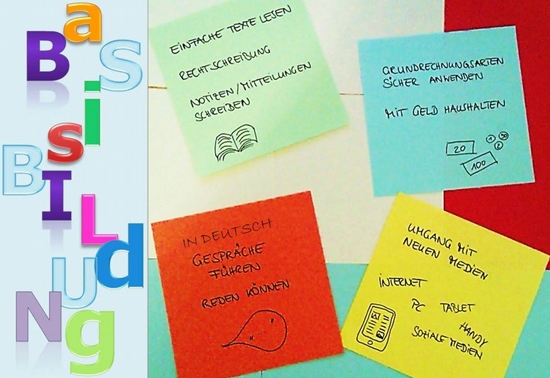 BasisBILdUNg
EINFACHE TEXTE LESEN
RECHTSCHREIBUNG
NOTIZEN/MITTEILUNGEN
SCHREIBEN
GRUNDRECHNUNGSARTEN
SICHER ANWENDEN
MIT GELD HAUSHALTEN
20
100
IN DEUTSCH
GESPRÄCHE
FÜHREN
REDEN KÖNNEN
UMGANG MIT
NEUEN MEDIEN
INTERNET
PC TABLET
HANDY
SOZIALE MEDIEN